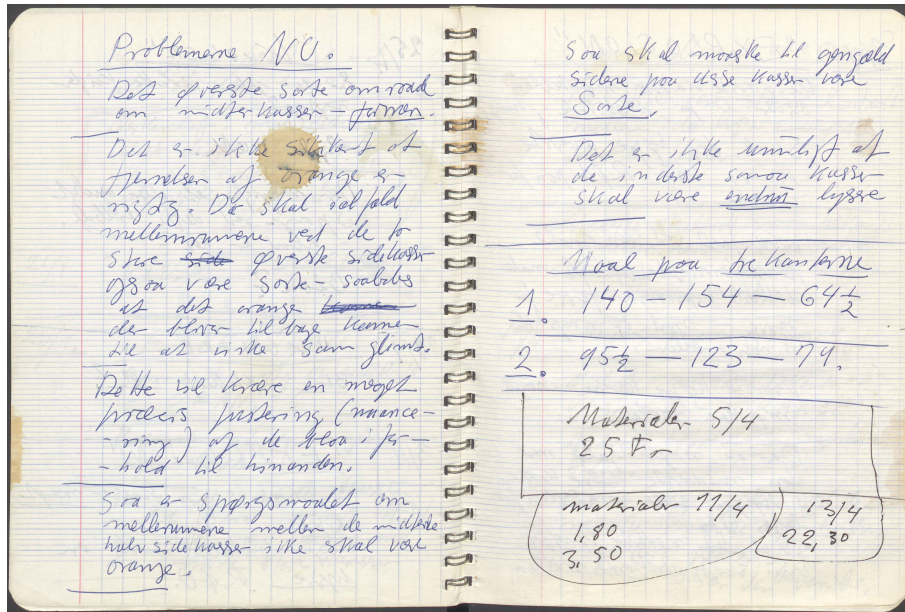 Problemerne NU.
Det øverste sorte omraade
om midterkasser - farven.
Det er ikke sikkert at
fjernelser af orange er
rigtig. Da skal ialfald
mellemrumene ved de to
store side øverste sidekasser
ogsaa være sorte - saaledes
at det orange
der bliver til bage kunne
til at virke som glimt.
Dette vil kræve en meget
præcis justering (nuance-
-ring) af de blaa i for-
-hold til hinanden.
Saa er spørgsmaalet om
mellemrumene mellem de midterste
halv sidekasser ikke skal være
orange.
Saa skal maaske til gengæld
siderne paa disse kasser være
Sorte.
Det er ikke umuligt at
de inderste smaa kasser
skal være endnu lysere
Maal paa trekanterne
1. 140 - 154 - 64½
2. 95½ - 123 - 79.
Materialer 5/4
25 Fr
materialer 11/4
1,80
3,50
13/4
22,30